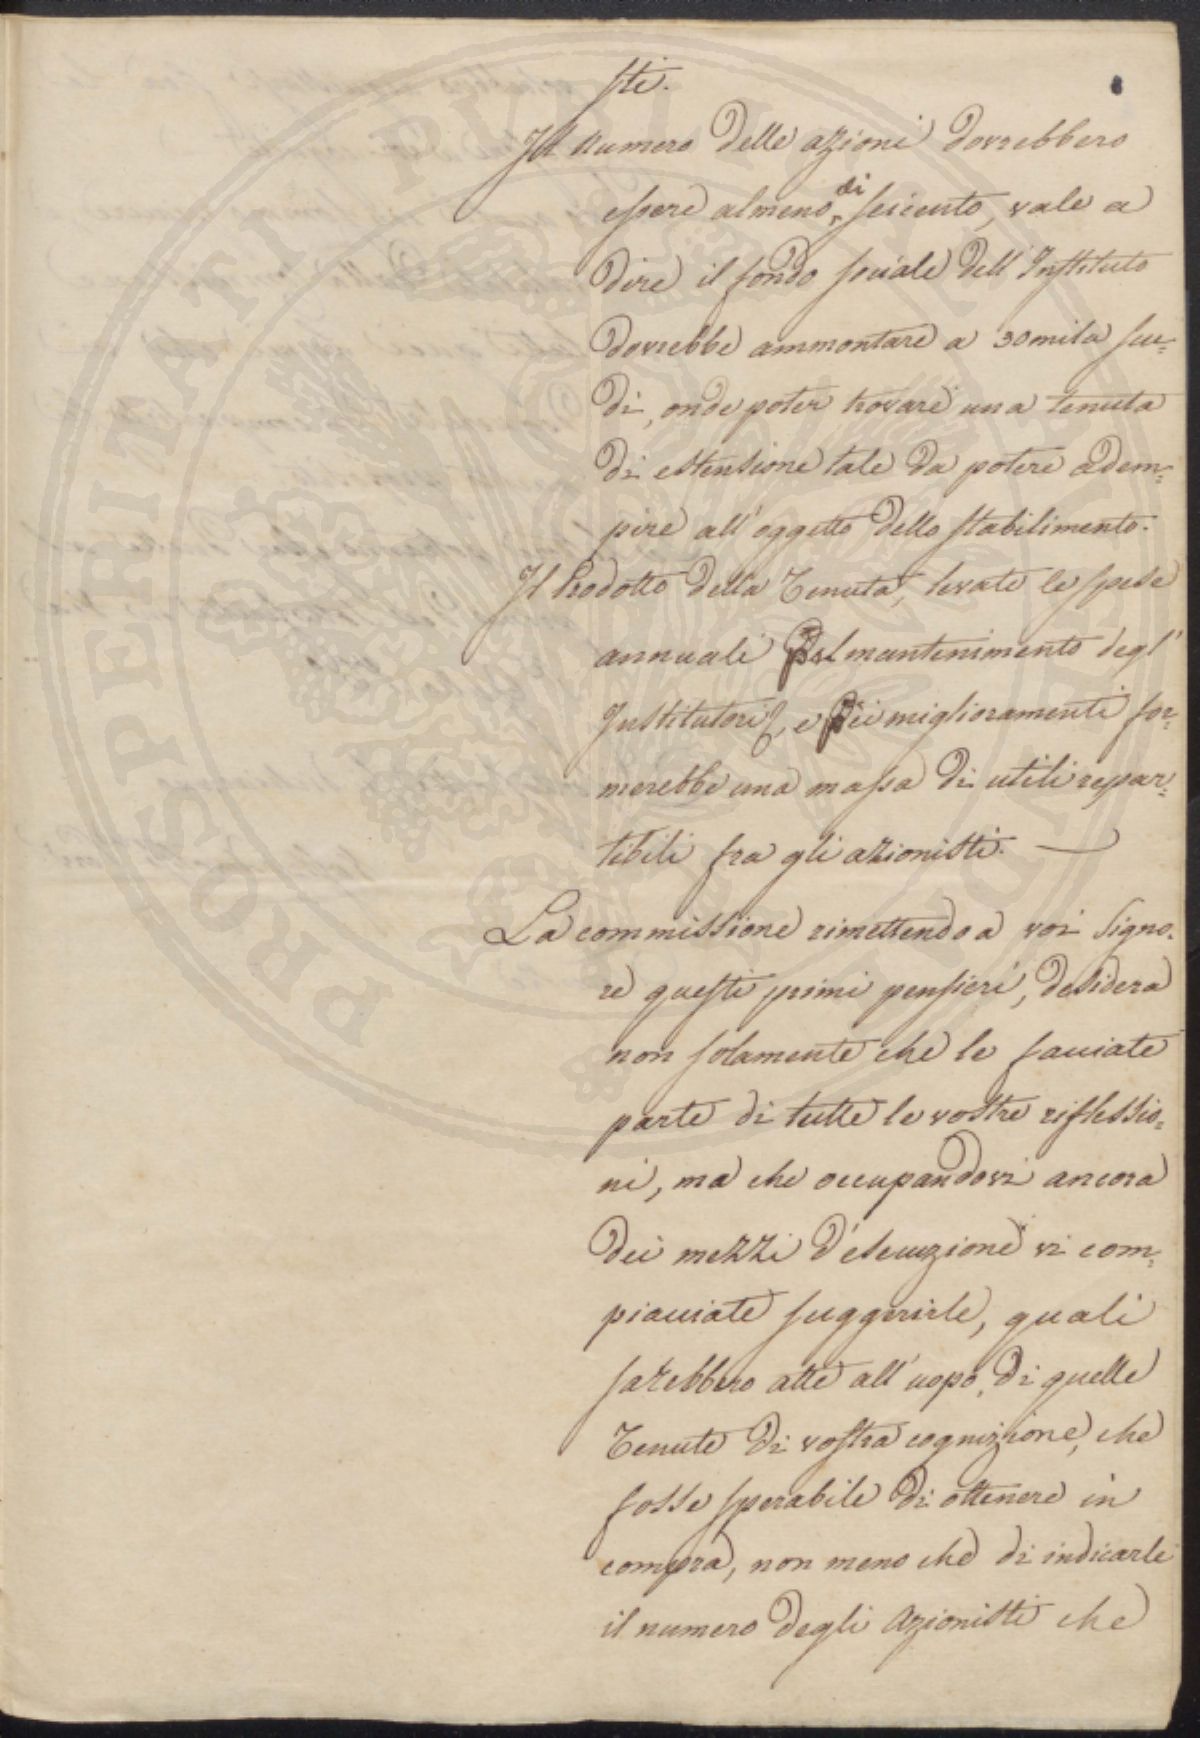 sti.
Il numero delle azioni dovrebbero
essere almeno di seicento, vale a
dire il fondo sociale dell'Instituto
dovrebbe ammontare a 30mila scu=
di, onde poter trovare una tenuta
di estensione tale da potere adem=
pire all'oggetto dello stabilimento.
Il Prodotto della Tenuta, levate le spese
annuali pel mantenimento degl'
Institutori, e pei miglioramenti for=
merebbe una massa di utili repar=
tibili fra gli azionisti.
La commissione rimettendo a voi Signo=
re questi primi pensieri, desidera
non solamente che le facciate
parte di tutte le vostre riflessio=
ni, ma che occupandovi ancora
dei mezzi d'esecuzione vi com=
piacciate suggerirle, quali
sarebbero atte all'uopo, di quelle
Tenute di vostra cognizione, che
fosse sperabile di ottenere in
compra, non meno che di indicarle
il numero degli Azionisti che
PROSPERITATI PUBLICAE